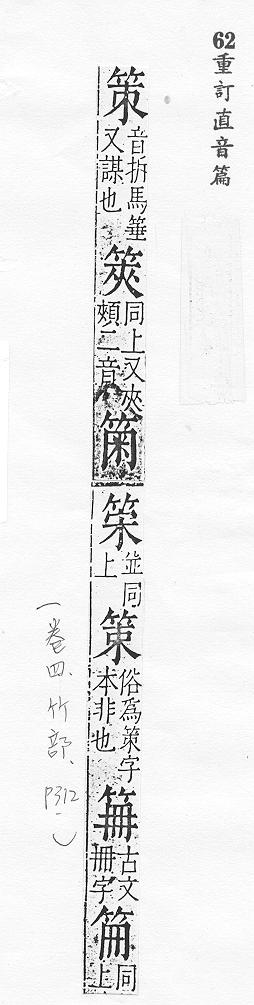 62重訂直音篇
策
音拆馬箠
又謀也
筴
同上又夾
頰二音
並同
上
俗為策字
本非也
古文
冊字
同
上
(卷四、竹部、P312.)